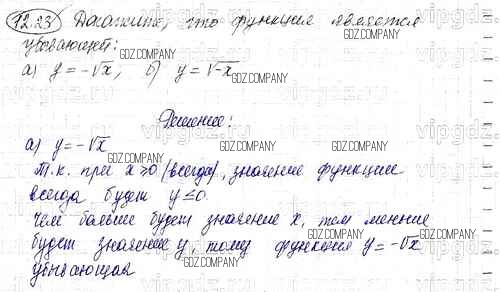 12.23 Доказать, что функция является
убывающей:
а) y = -√x, б) y = √-x
Решение:
а) y = -√x
Т.к. при x ≥ 0 (всегда), значение функции
всегда будет y ≤ 0.
Чем больше будет значение x, тем меньше
будет значение y, тому функция y = -√x
убывающая
GDZ.COMPANY
vipgdz